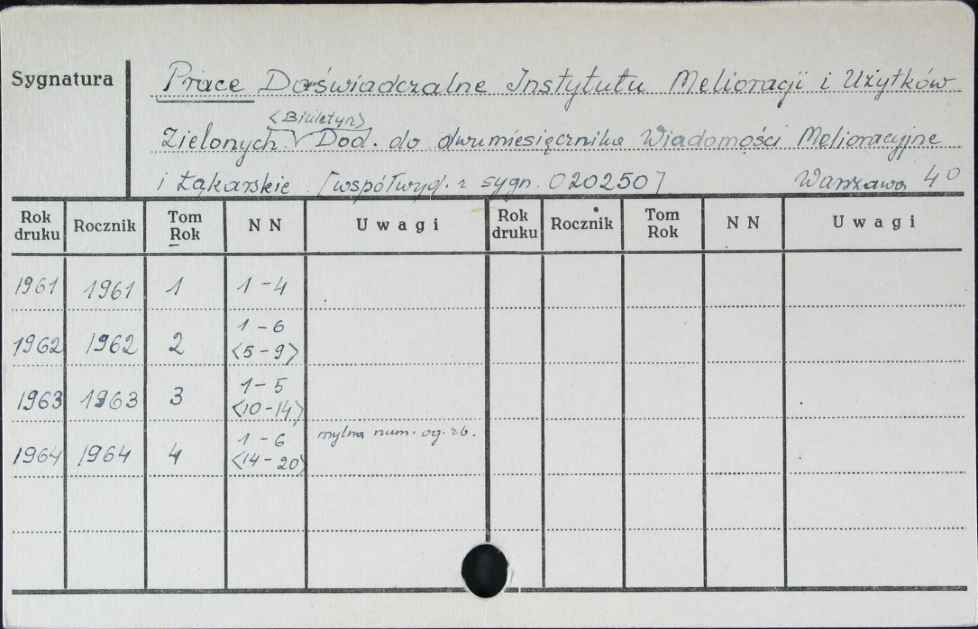 Sygnatura
Prace Doświadczalne Instytutu Melioracji i Użytków
<Biuletyn>
Zielonych. Dod. do dwumiesięcznika Wiadomości Melioracyjne
i Łąkarskie [współwyd. z sygn. 0202507] Warszawa 40
Rok druku Rocznik Tom Rok NN Uwagi Rok druku Rocznik Tom Rok NN Uwagi
1961 1961 1 1-4
1962 1962 2 1-6 <5-9>
1963 1963 3 1-5 <10-14>
1964 1964 4 1-6 <14-20> mylna num. og. zb.